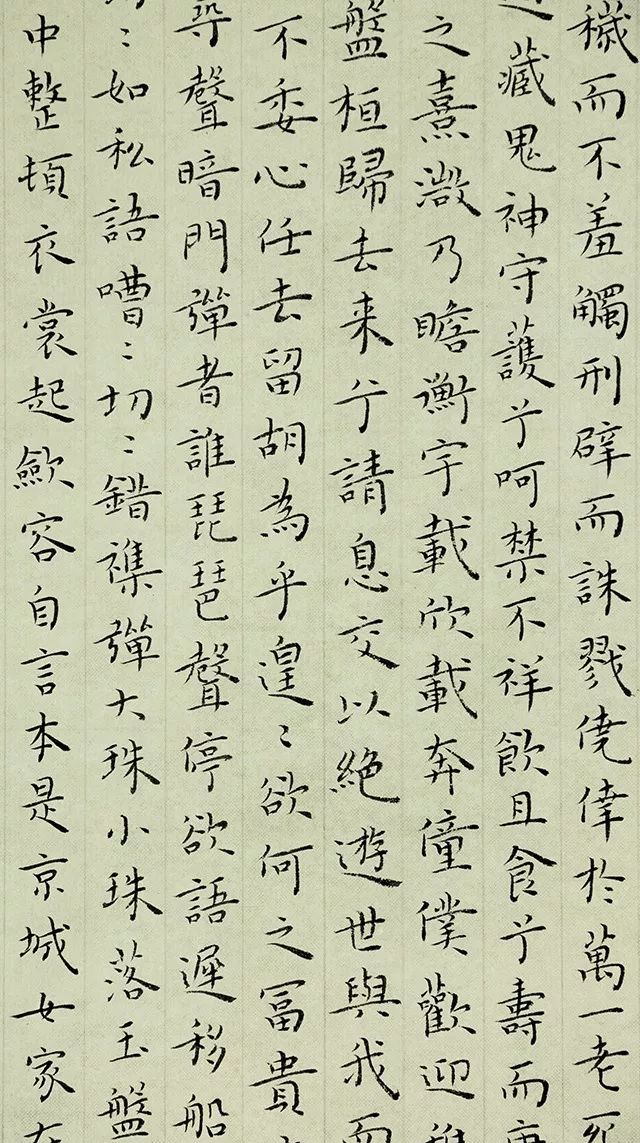 穢而不羞觸刑辟而誅戮僥倖於萬一老死
藏鬼神守護兮呵禁不祥飲且食兮壽而康
之熹微乃瞻衡宇載欣載奔僮僕歡迎稚
盤桓歸去来兮請息交以絕遊世與我而
不委心任去留胡為乎遑〻欲何之冨貴
尋聲暗問彈者誰琵琶聲停欲語遲移船
〻如私語嘈〻切〻錯襍彈大珠小珠落玉盤
中整頓衣裳起歛容自言本是京城女家在